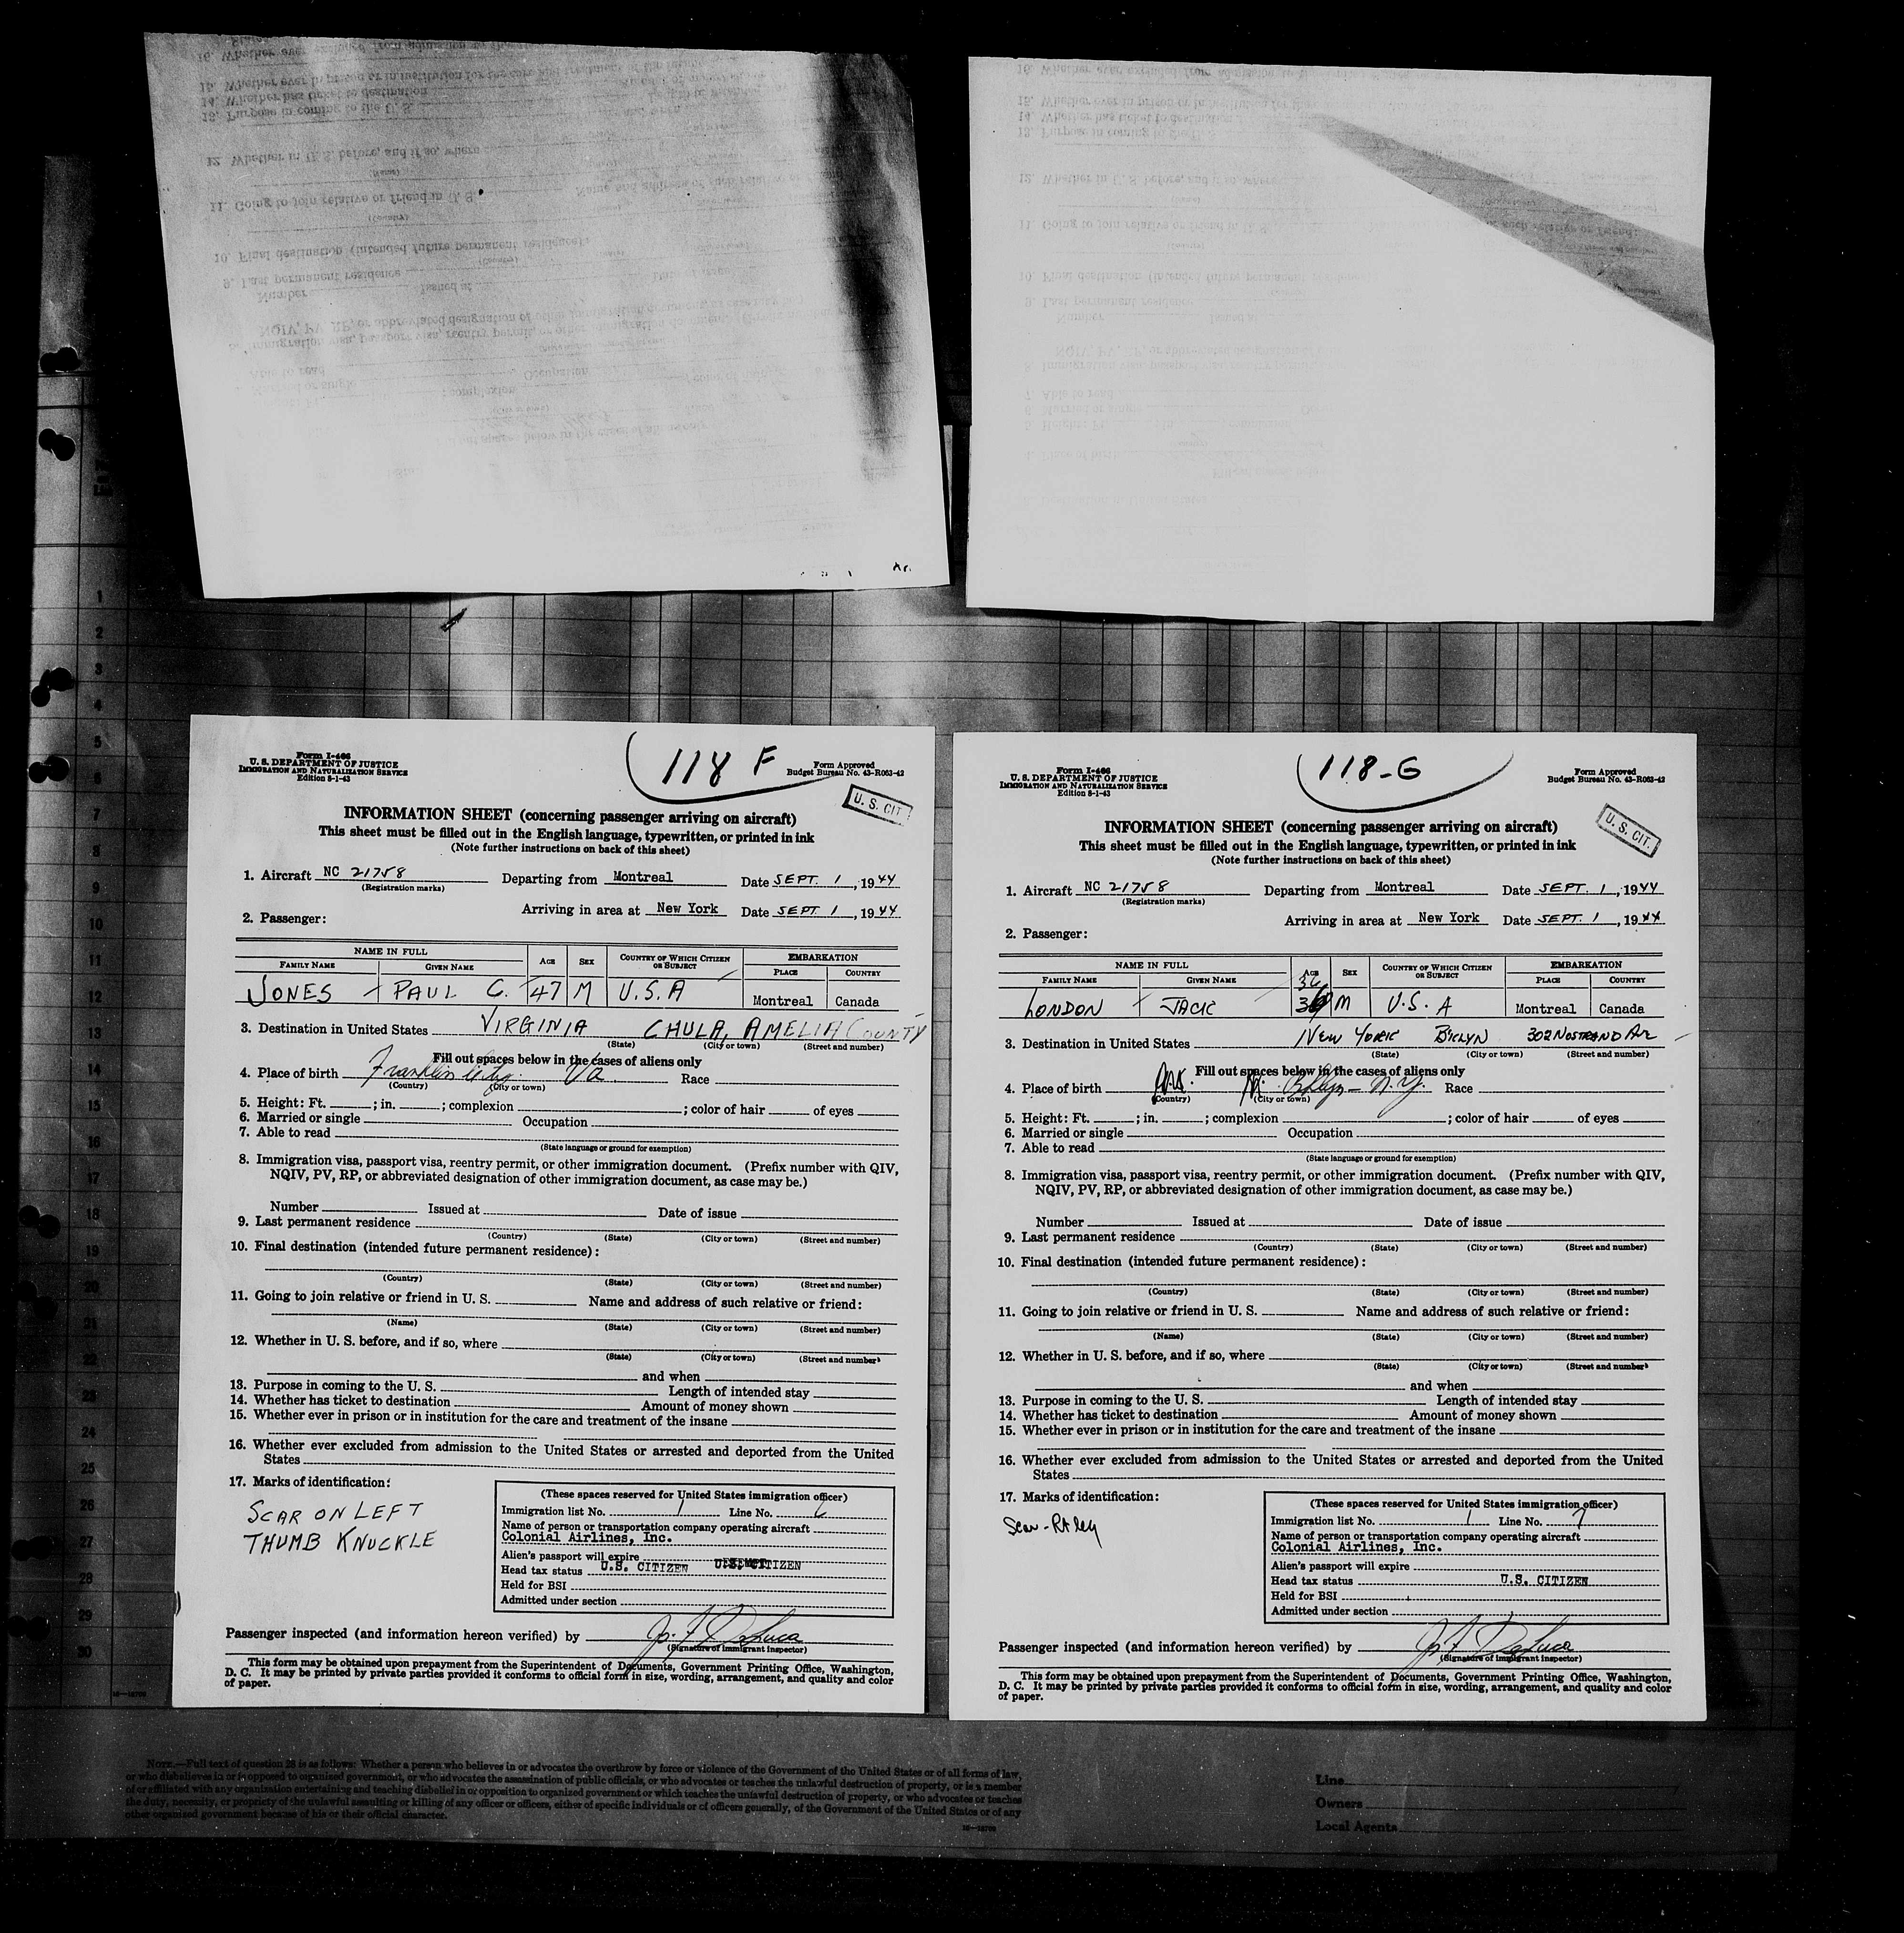 118 F
Form I-466
U. S. DEPARTMENT OF JUSTICE
IMMIGRATION AND NATURALIZATION SERVICE
Edition 8-1-43
Form Approved
Budget Bureau No. 43-R063-42
U. S. CIT.
INFORMATION SHEET (concerning passenger arriving on aircraft)
This sheet must be filled out in the English language, typewritten, or printed in ink
(Note further instructions on back of this sheet)
1. Aircraft NC 21758 Departing from Montreal Date SEPT. 1, 1944
(Registration marks)
Arriving in area at New York Date SEPT. 1, 1944
2. Passenger:
NAME IN FULL AGE SEX COUNTRY OF WHICH CITIZEN OR SUBJECT EMBARKATION
FAMILY NAME GIVEN NAME PLACE COUNTRY
JONES PAUL C. 47 M U.S.A Montreal Canada
3. Destination in United States VIRGINIA CHULA, AMELIA COUNTY
(State) (City or town) (Street and number)
Fill out spaces below in the cases of aliens only
4. Place of birth Franklin City. Va. Race
(Country) (City or town)
5. Height: Ft. ; in. ; complexion ; color of hair of eyes
6. Married or single Occupation
7. Able to read
(State language or ground for exemption)
8. Immigration visa, passport visa, reentry permit, or other immigration document. (Prefix number with QIV,
NQIV, PV, RP, or abbreviated designation of other immigration document, as case may be.)
Number Issued at Date of issue
9. Last permanent residence
(Country) (State) (City or town) (Street and number)
10. Final destination (intended future permanent residence):
(Country) (State) (City or town) (Street and number)
11. Going to join relative or friend in U. S. Name and address of such relative or friend:
(Name) (State) (City or town) (Street and number)
12. Whether in U. S. before, and if so, where
(State) (City or town) (Street and number)
and when
13. Purpose in coming to the U. S. Length of intended stay
14. Whether has ticket to destination Amount of money shown
15. Whether ever in prison or in institution for the care and treatment of the insane
16. Whether ever excluded from admission to the United States or arrested and deported from the United
States
17. Marks of identification:
SCAR ON LEFT
THUMB KNUCKLE
(These spaces reserved for United States immigration officer)
Immigration list No. 1 Line No. 6
Name of person or transportation company operating aircraft
Colonial Airlines, Inc.
Alien's passport will expire
Head tax status U.S. CITIZEN U.S. CITIZEN
Held for BSI
Admitted under section
Passenger inspected (and information hereon verified) by
(Signature of immigrant inspector)
This form may be obtained upon prepayment from the Superintendent of Documents, Government Printing Office, Washington,
D. C. It may be printed by private parties provided it conforms to official form in size, wording, arrangement, and quality and color
of paper.
118-G
Form I-466
U. S. DEPARTMENT OF JUSTICE
IMMIGRATION AND NATURALIZATION SERVICE
Edition 8-1-43
Form Approved
Budget Bureau No. 43-R063-42
U. S. CIT.
INFORMATION SHEET (concerning passenger arriving on aircraft)
This sheet must be filled out in the English language, typewritten, or printed in ink
(Note further instructions on back of this sheet)
1. Aircraft NC 21758 Departing from Montreal Date SEPT. 1, 1944
(Registration marks)
Arriving in area at New York Date SEPT. 1, 1944
2. Passenger:
NAME IN FULL AGE SEX COUNTRY OF WHICH CITIZEN OR SUBJECT EMBARKATION
FAMILY NAME GIVEN NAME PLACE COUNTRY
LONDON JACK 36 M U.S.A Montreal Canada
3. Destination in United States NEW YORK B'KLYN 302 NOSTRAND AVE
(State) (City or town) (Street and number)
Fill out spaces below in the cases of aliens only
4. Place of birth Bklyn - N.Y. Race
(Country) (City or town)
5. Height: Ft. ; in. ; complexion ; color of hair of eyes
6. Married or single Occupation
7. Able to read
(State language or ground for exemption)
8. Immigration visa, passport visa, reentry permit, or other immigration document. (Prefix number with QIV,
NQIV, PV, RP, or abbreviated designation of other immigration document, as case may be.)
Number Issued at Date of issue
9. Last permanent residence
(Country) (State) (City or town) (Street and number)
10. Final destination (intended future permanent residence):
(Country) (State) (City or town) (Street and number)
11. Going to join relative or friend in U. S. Name and address of such relative or friend:
(Name) (State) (City or town) (Street and number)
12. Whether in U. S. before, and if so, where
(State) (City or town) (Street and number)
and when
13. Purpose in coming to the U. S. Length of intended stay
14. Whether has ticket to destination Amount of money shown
15. Whether ever in prison or in institution for the care and treatment of the insane
16. Whether ever excluded from admission to the United States or arrested and deported from the United
States
17. Marks of identification:
Scar - Rt leg
(These spaces reserved for United States immigration officer)
Immigration list No. 1 Line No. 7
Name of person or transportation company operating aircraft
Colonial Airlines, Inc.
Alien's passport will expire
Head tax status U.S. CITIZEN
Held for BSI
Admitted under section
Passenger inspected (and information hereon verified) by
(Signature of immigrant inspector)
This form may be obtained upon prepayment from the Superintendent of Documents, Government Printing Office, Washington,
D. C. It may be printed by private parties provided it conforms to official form in size, wording, arrangement, and quality and color
of paper.
NOTE.—Full text of question 28 is as follows: Whether a person who believes in or advocates the overthrow by force or violence of the Government of the United States or of all forms of law,
or who disbelieves in or is opposed to organized government, or who advocates the assassination of public officials, or who advocates or teaches the unlawful destruction of property, or is a member
of or affiliated with any organization entertaining and teaching disbelief in or opposition to organized government or which teaches the unlawful destruction of property, or who advocates or teaches
the duty, necessity, or propriety of the unlawful assaulting or killing of any officer or officers, either of specific individuals or of officers generally, of the Government of the United States or of any
other organized government because of his or their official character.
Line
Owners
Local Agents